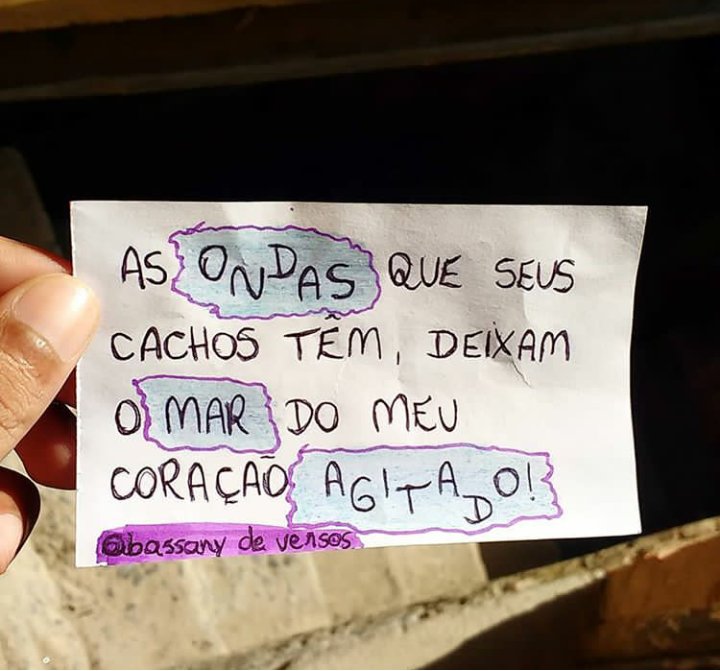 AS ONDAS QUE SEUS
CACHOS TÊM, DEIXAM
O MAR DO MEU
CORAÇÃO AGITADO!
@bassany de versos